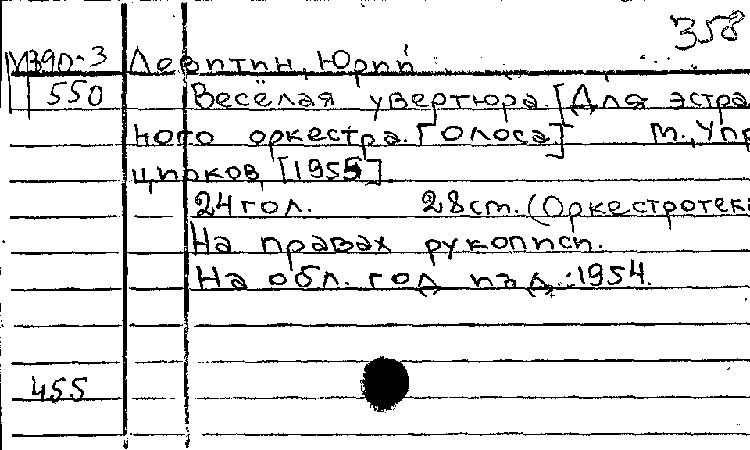 358
М390-3 Левитин, Юрий
550 Весёлая увертюра. [Для эстра
ного оркестра. Голоса.] М., Упр
цирков, [1955].
24 гол. 28 ст. (Оркестротек
На правах рукописи.
На обл. год изд.: 1954.
455